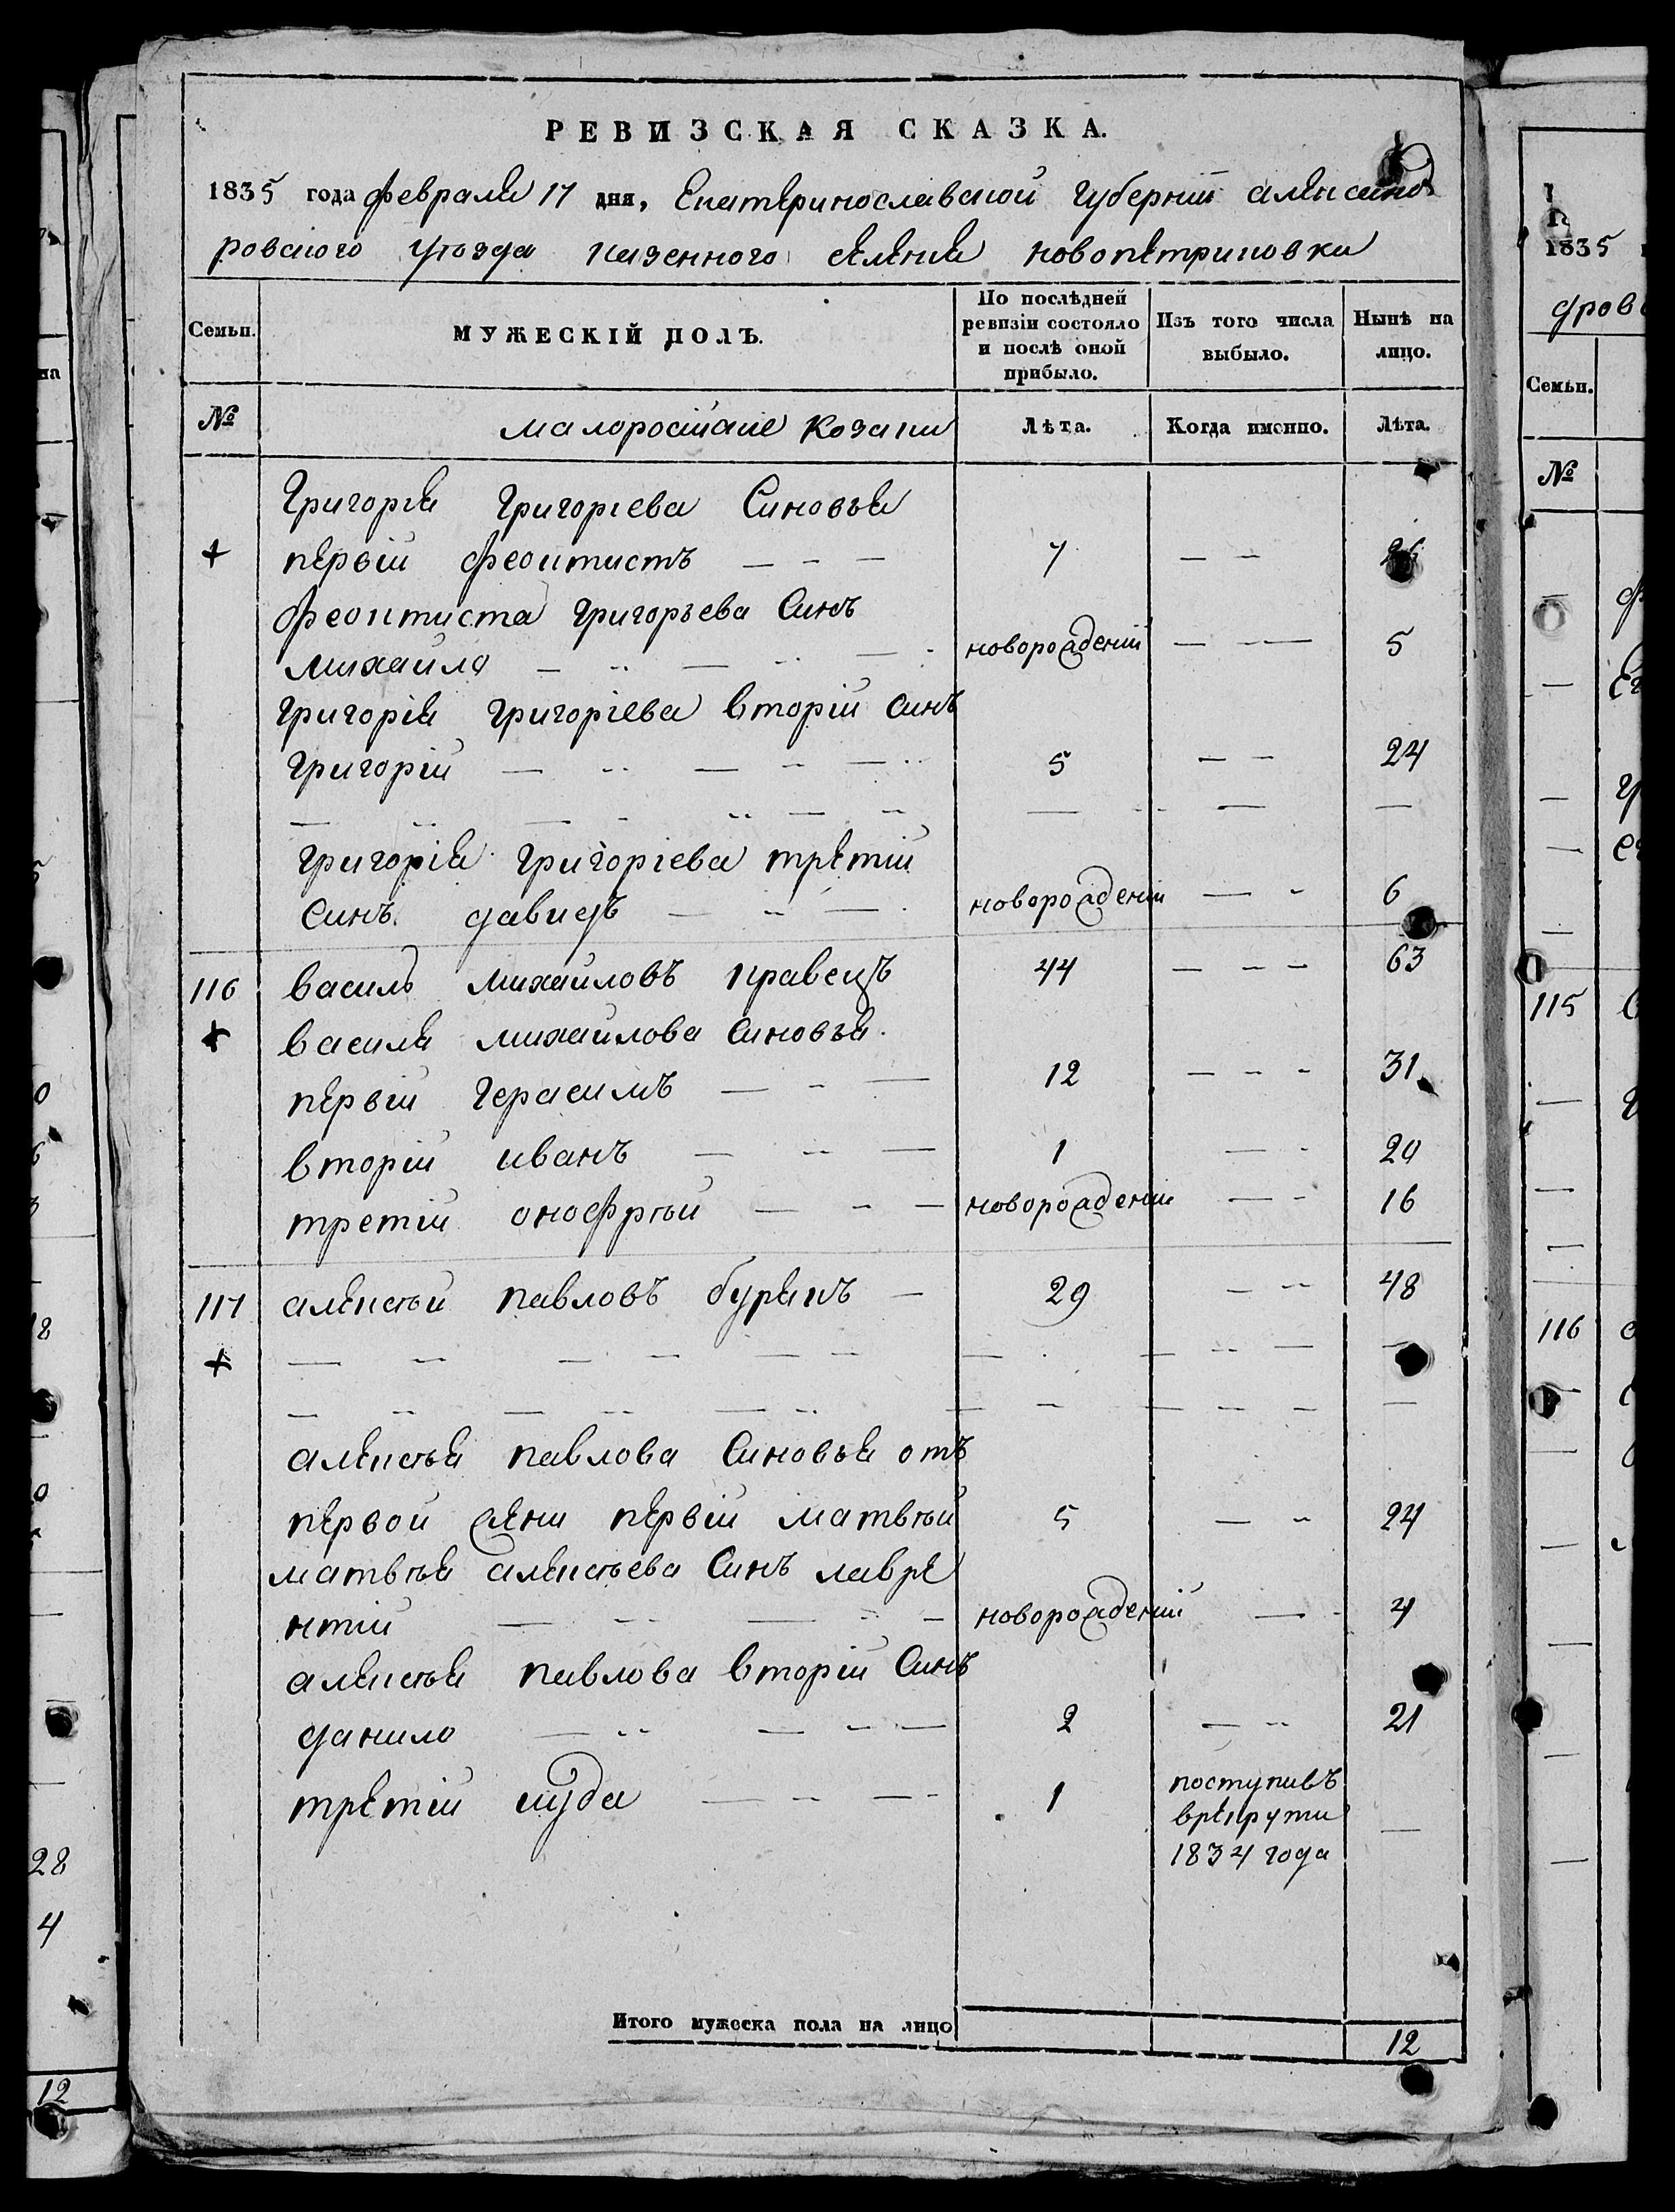 РЕВИЗСКАЯ СКАЗКА.
1835 года февраля 17 дня, Екатеринославской губерніи александ
ровского уѣзда казенного селенія новопетриковки
Семьи.
МУЖЕСКІЙ ПОЛЪ.
По послѣдней ревизіи состояло и послѣ оной прибыло.
Изъ того числа выбыло.
Нынѣ на лицо.
№ малоросійскіе козаки Лѣта. Когда именно. Лѣта.
Григорія Григоріева Синовья
первій феоктистъ — — — 7 — —
феоктиста григорьева Синъ
михайло — — — новорожденій — — 5
григорія григоріева вторій синъ
григорій — — — 5 — — 24
григорія григоріева третій
синъ давидъ — — — новорожденій — — 6
116 василь михайловъ кравецъ 44 — — — 63
+ василя михайлова синовья
первій герасимъ — — — 12 — — — 31
вторій иванъ — — — 1 — — 20
третій онофрѣй — — — новорожденій — — 16
117 алексѣй павловъ бурякъ — 29 — — 48
+
алексѣя павлова синовья отъ
первой жени первій матвѣй 5 — — 24
матвѣя алексѣева Синъ лавре
нтій — — — новорожденій — 4
алексѣя павлова вторій Синъ
данило — — — 2 — — 21
третій іюда — — — 1 поступивъ
врекрути —
1834 года
Итого мужеска пола на лицо 12
1835
дров
Семьи.
№
115
116
18
28
4
12